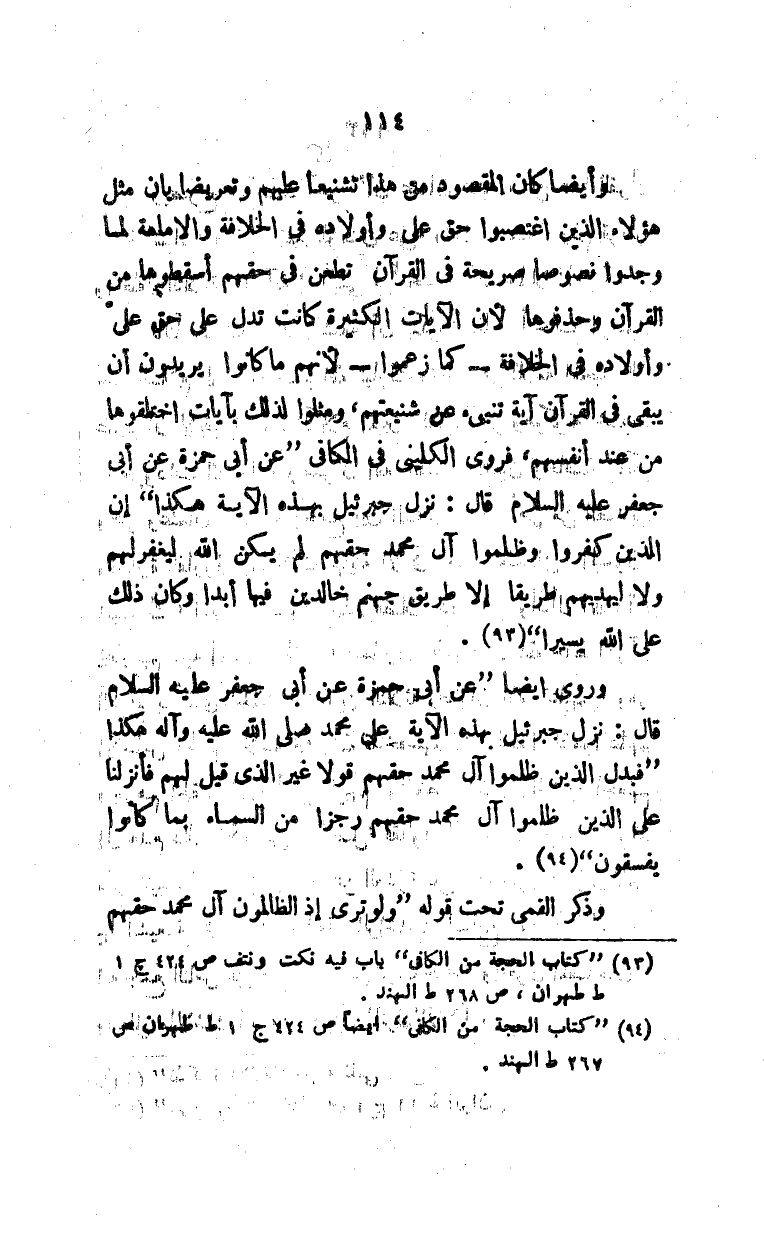 ١١٤
وأيضا كان المقصود من هذا تشنيعا عليهم وتعريضا بان مثل
هؤلاء الذين اغتصبوا حق على وأولاده فى الخلافة والامامة لما
وجدوا نصوصا صريحة فى القرآن تطعن فى حقهم أسقطوها من
القرآن وحذفوها لأن الآيات الكثيرة كانت تدل على حق على
وأولاده فى الخلافة – كما زعموا – لأنهم ما كانوا يريدون أن
يبقى فى القرآن آية تنبىء عن شنيعتهم، ومثلوا لذلك بآيات اختلقوها
من عند أنفسهم، فروى الكلينى فى الكافى ”عن أبى حمزة عن أبى
جعفر عليه السلام قال : نزل جبرئيل بهذه الآية هكذا“ إن
الذين كفروا وظلموا آل محمد حقهم لم يكن الله ليغفرلهم
ولا ليهديهم طريقا إلا طريق جهنم خالدين فيها أبدا وكان ذلك
على الله يسيرا“(٩٣) .
وروى ايضا ”عن أبى حمزة عن أبى جعفر عليه السلام
قال : نزل جبرئيل بهذه الآية على محمد صلى الله عليه وآله هكذا
”فبدل الذين ظلموا آل محمد حقهم قولا غير الذى قيل لهم فأنزلنا
على الذين ظلموا آل محمد حقهم رجزا من السماء بما كانوا
يفسقون“(٩٤) .
وذكر القمى تحت قوله ”ولوترى إذ الظالمون آل محمد حقهم
(٩٣) ”كتاب الحجة من الكافى“ باب فيه نكت ونتف ص ٤٢٤ ج ١
ط طهران ، ص ٢٦٨ ط الهند .
(٩٤) ”كتاب الحجة من الكافى“. ايضاً ص ٤٢٤ ج ١ ط طهران ص
٢٦٧ ط الهند .